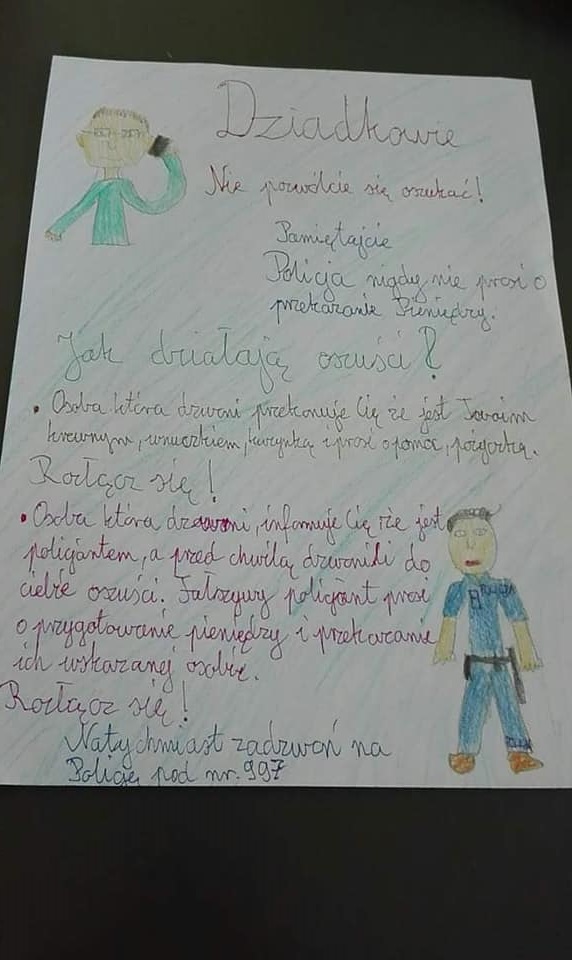 Dziadkowie
Nie pozwólcie się oszukać!
Pamiętajcie
Policja nigdy nie prosi o
przekazanie Pieniędzy.
Jak działają oszuści?
• Osoba która dzwoni przekonuje Cię że jest Twoim
krewnym, wnuczkiem, kuzynką i prosi o pomoc, pożyczkę.
Rozłącz się!
• Osoba która dzwoni, informuje Cię że jest
poligantem, a przed chwilą dzwonili do
ciebie oszuści. Fałszywy poligant prosi
o przygotowanie pieniędzy i przekazanie
ich wskazanej osobie.
Rozłącz się!
Natychmiast zadzwoń na
Policję pod nr. 997